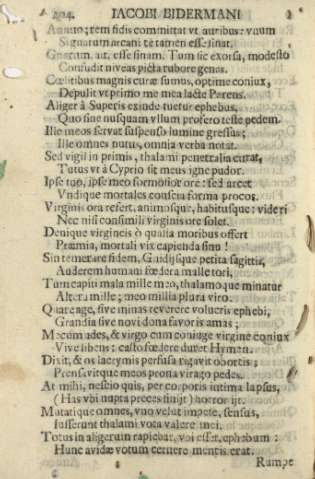 204. IACOBI BIDERMANI
Annuo; rem fidis committat vt auribus: vnum
Signatum arcani te tamen esse sinat.
Gnarum, ait, esse sinam. Tum sic exorsa, modesto
Confudit niveas picta rubore genas.
Cœlitibus magnis curæ sumus, optime coniux,
Depulit vt primo me mea lacte Parens.
Aliger à Superis exinde tuetur ephebus,
Quo sine nusquam vllum profero teste pedem.
Ille meos servat suspenso lumine gressus;
Ille omnes nutus, omnia verba notat.
Sed vigil in primis, thalami penetralia curat,
Tutus vt à Cyprio sit meus igne pudor.
Ipse tuo, ipse meo formosior ore: sed arcet
Vndique mortales conscia forma procos.
Virginis ora refert, animosque, habitusque: videri
Nec nisi consimili virginis ore solet.
Denique virgineis ô qualia moribus offert
Præmia, mortali vix capienda sinu!
Sin temerare fidem, Gnidijsque petita sagittis,
Auderem humani fœdera malle tori,
Tum capiti mala mille meo, thalamoque minatur
Altera mille; meo millia plura viro.
Quare age, sive minas reverere volucris ephebi,
Grandia sive novi dona favoris amas;
Mecum ades, & virgo cum coniuge virgine coniux
Vive libens: casto fœdere ducet Hymen.
Dixit, & os lacrymis perfusa rigavit obortis;
Prensavitque meos prona virago pedes.
At mihi, nescio quis, per corporis intima lapsus,
(Has vbi nupta preces finijt) horror ijt.
Mutatique omnes, vno velut impete, sensus,
Iusserunt thalami vota valere mei.
Totus in aligerum rapiebar, vbi esset, ephebum:
Hunc avidæ votum cernere mentis erat.
Rumpe